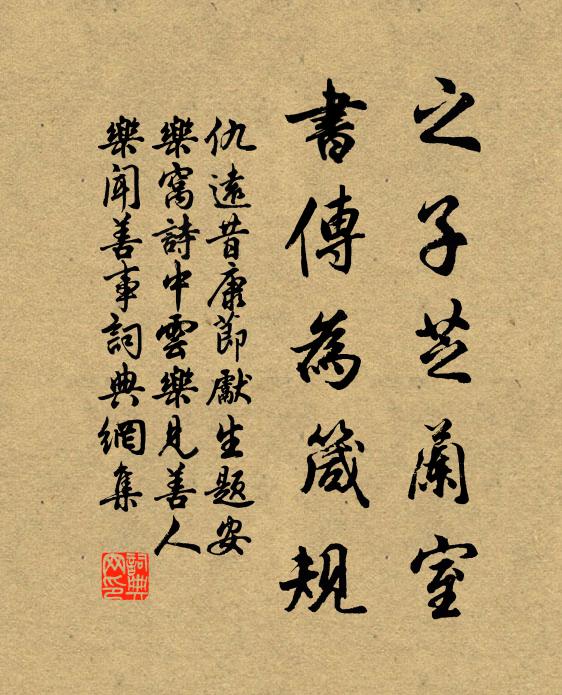 之子芝蘭室
書傳為箴規
仇遠昔康節獻生題安
樂窩詩中雲樂見善人
樂聞善事詞典網集
詞典
网印